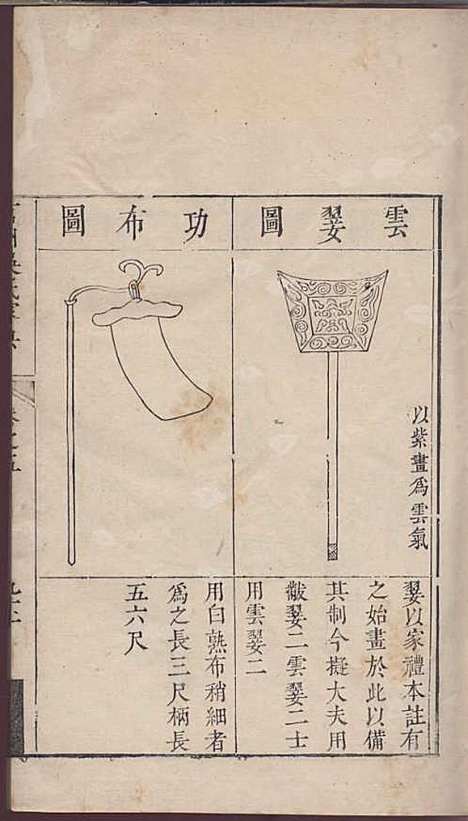 雲翣圖
以紫畫爲雲氣
翣以家禮本註有
之始畫於此以備
其制今擬大夫用
黻翣二雲翣二士
用雲翣二
功布圖
用白熟布稍細者
爲之長三尺柄長
五六尺